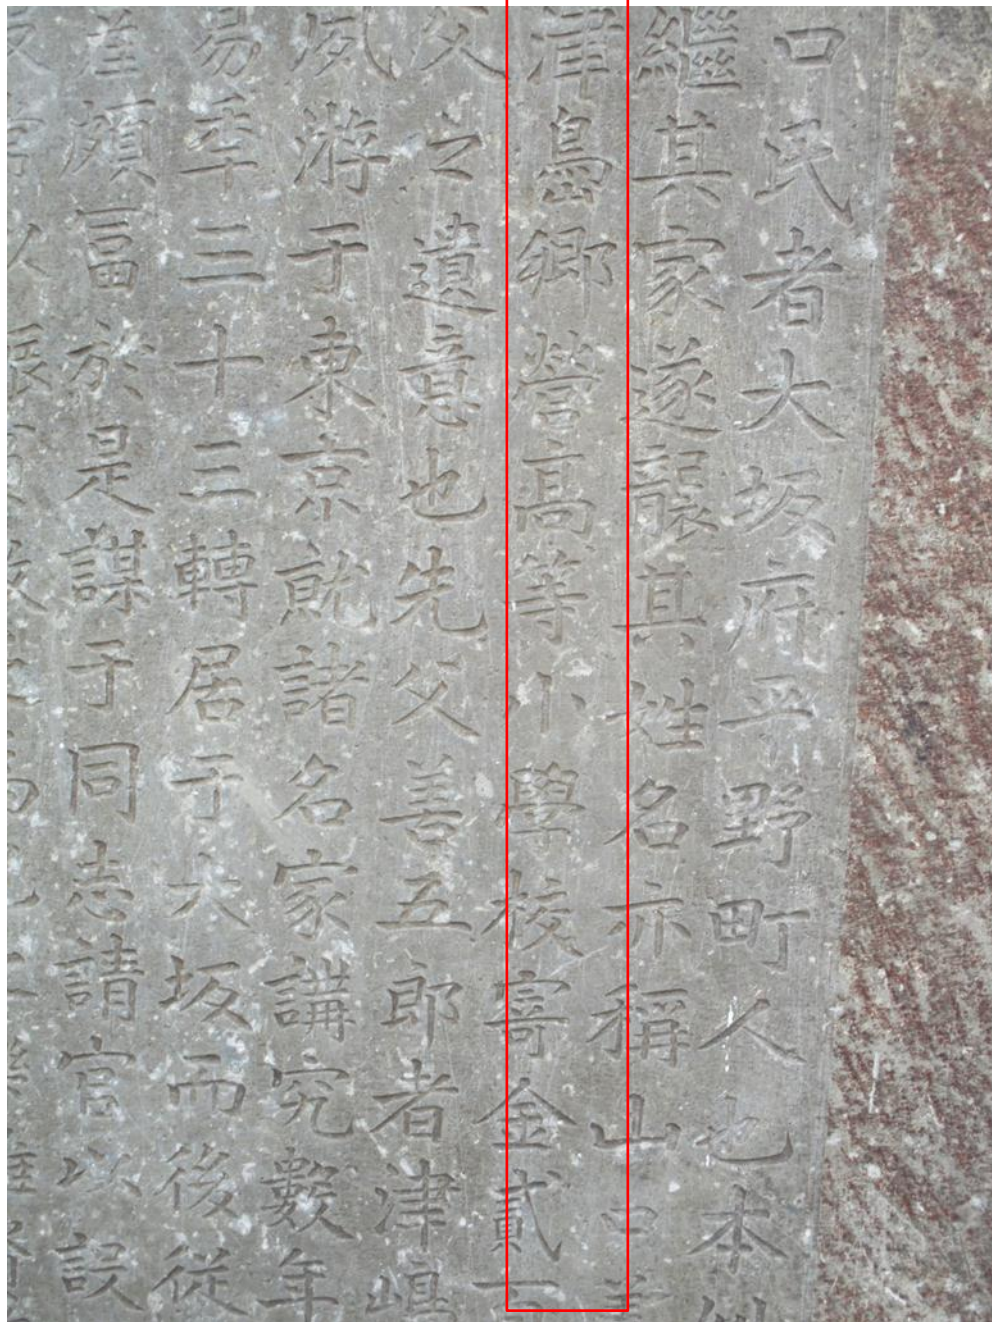 口民者大坂府平野町人也本
繼其家遂襲其姓名亦稱山口善
津嶌鄉營高等小學校寄金貳百
父之遺意也先父善五郎者津嶋
夙游于東京就諸名家講究數年
易季三十三轉居于大坂而後從
産頗冨於是謀于同志請官以設